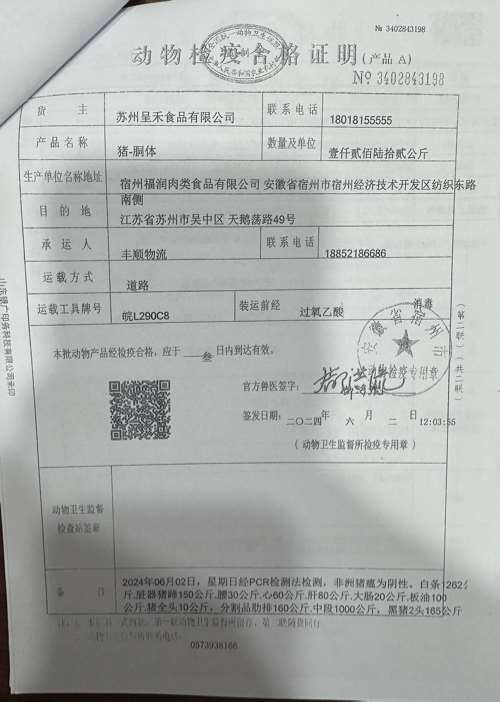 № 3402843198
动物检疫合格证明(产品 A)
№ 3402843198
货 主 苏州呈禾食品有限公司 联系电话 18018155555
产品名称 猪-胴体 数量及单位 壹仟贰佰陆拾贰公斤
生产单位名称地址 宿州福润肉类食品有限公司 安徽省宿州市宿州经济技术开发区纺织东路
南侧
目 的 地 江苏省苏州市吴中区 天鹅荡路49号
承 运 人 丰顺物流 联系电话 18852186686
运载方式 道路
运载工具牌号 皖L290C8 装运前经 过氧乙酸 消毒
本批动物产品经检疫合格，应于 叁 日内到达有效。
安徽省宿州市
动物检疫专用章
官方兽医签字：
签发日期：二〇二四年 六 月 二 12:03:55
（动物卫生监督所检疫专用章）
动物卫生监督
检查站签章
备 注 2024年06月02日，星期日经PCR检测法检测，非洲猪瘟为阴性。白条1262公
斤.脏器猪蹄150公斤.腰30公斤.心60公斤.肝80公斤.大肠20公斤.板油100
公斤.猪全头10公斤，分割品肋排160公斤.中段1000公斤，黑猪2头165公斤
0573938166
（第二联）（共二联）